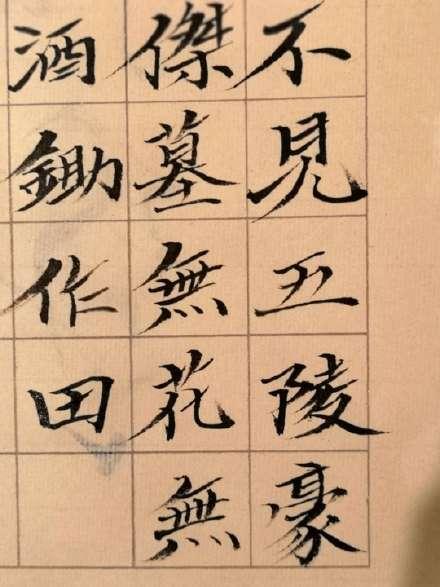 不見五陵豪
傑墓無花無
酒鋤作田